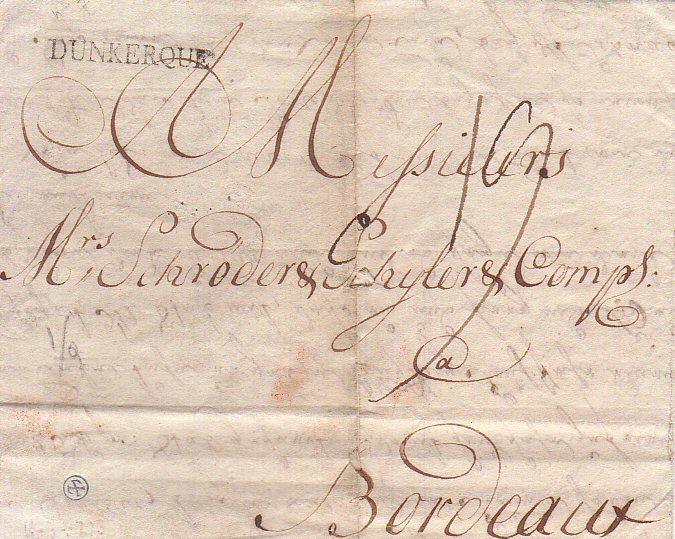 DUNKERQUE
A Messieurs
Mrs Schröder & Schyler & Comps:
a
Bordeaux